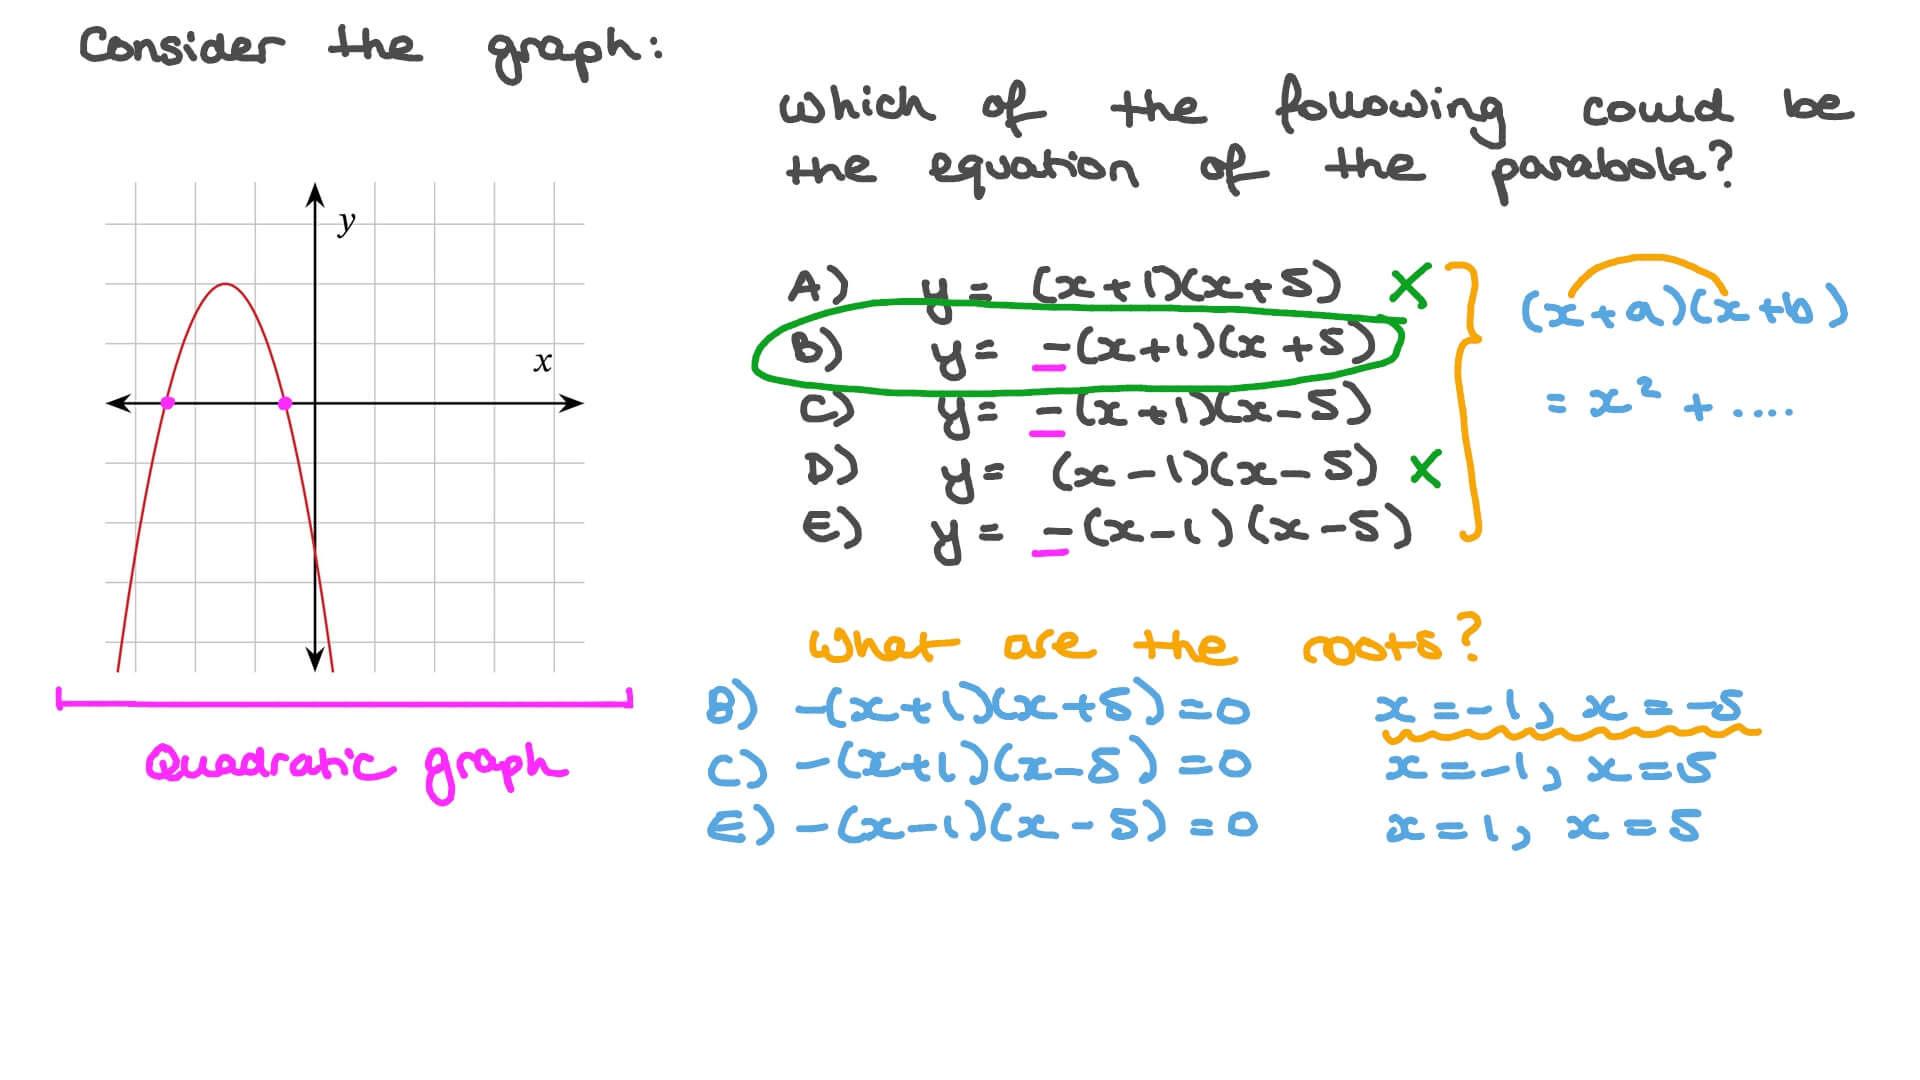 Consider the graph:
which of the following could be
the equation of the parabola?
y
x
A) y = (x+1)(x+5) ×
B) y = -(x+1)(x+5)
C) y = -(x+1)(x-5)
D) y = (x-1)(x-5) ×
E) y = -(x-1)(x-5)
(x+a)(x+b)
= x² + ....
Quadratic graph
What are the roots?
B) -(x+1)(x+5)=0 x=-1, x=-5
C) -(x+1)(x-5)=0 x=-1, x=5
E) -(x-1)(x-5)=0 x=1, x=5